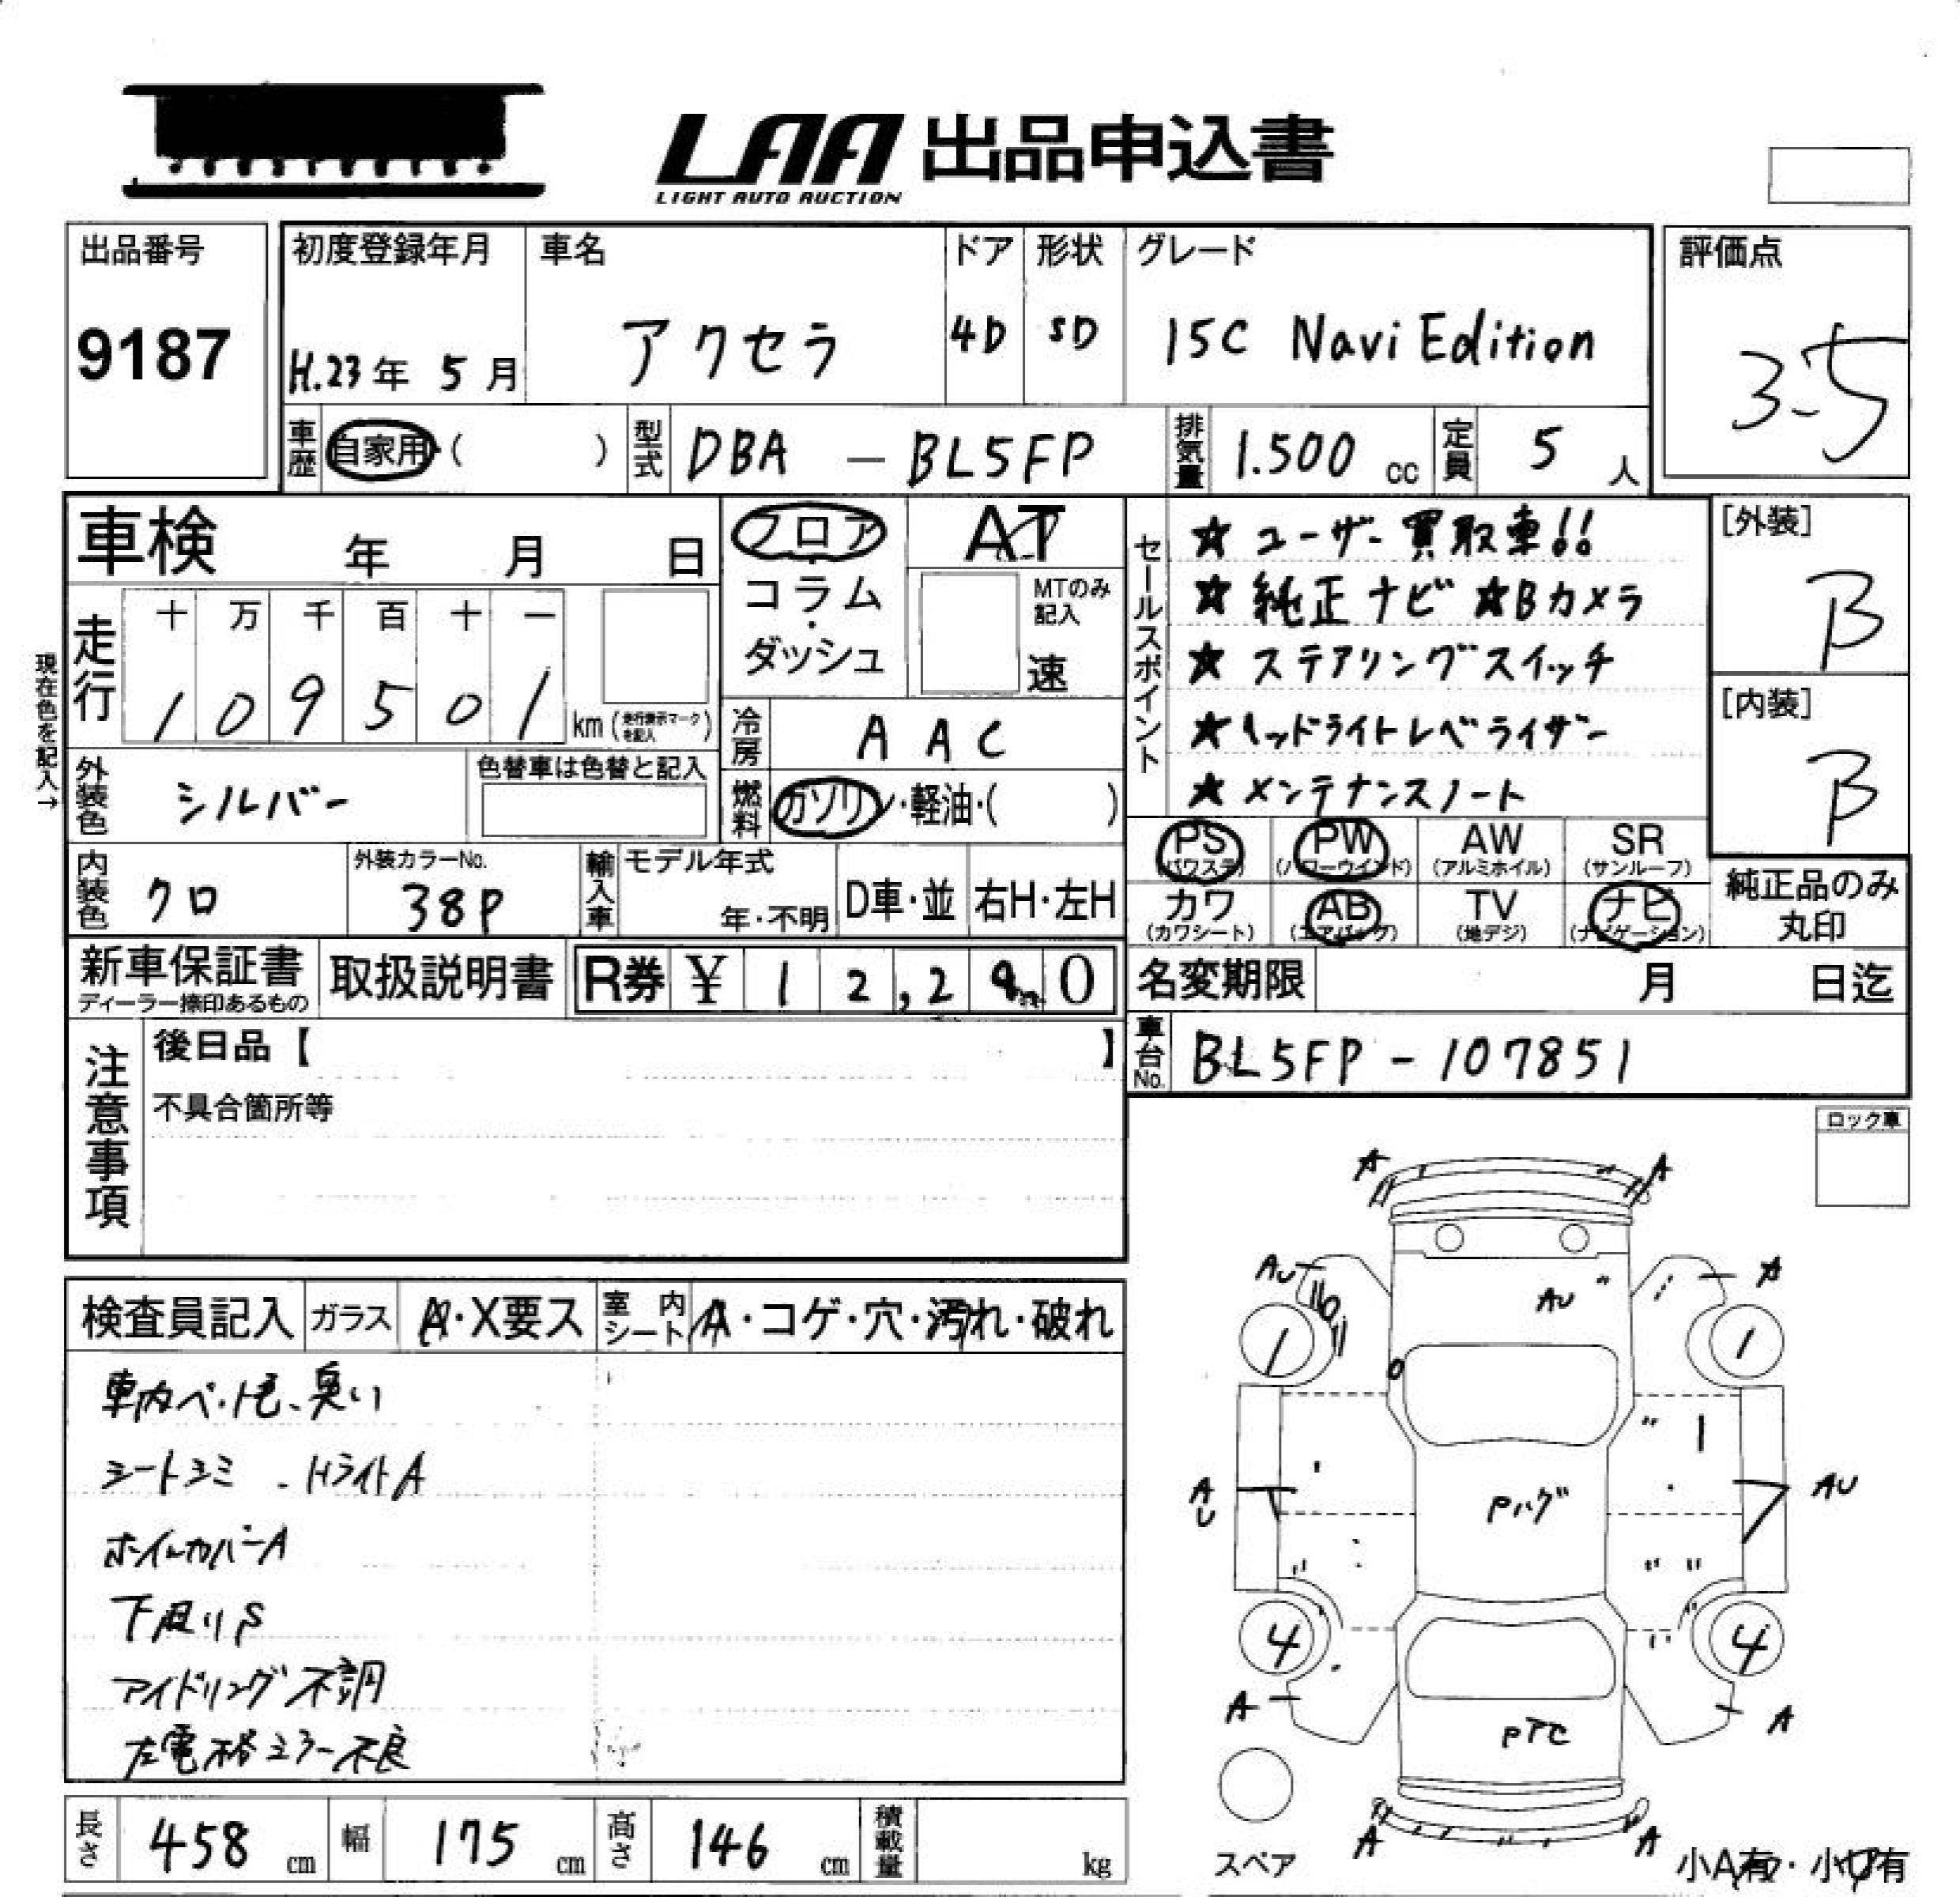 LAA 出品申込書
LIGHT AUTO AUCTION
出品番号
9187
初度登録年月
H.23年 5月
車名
アクセラ
ドア
4D
形状
SD
グレード
15C Navi Edition
評価点
3.5
車歴 自家用・( )
型式 DBA - BL5FP
排気量 1.500 cc
定員 5 人
車検 年 月 日
フロア・コラム・ダッシュ
AT
MTのみ記入
速
現在色を記入→
走行
十 万 千 百 十 一
1 0 9 5 0 1 km (走行表示マークを記入)
冷房 AAC
外装色 シルバー
色替車は色替と記入
燃料 ガソリン・軽油・( )
内装色 クロ
外装カラーNo.
38P
輸入車
モデル年式
年・不明
D車・並
右H・左H
セールスポイント
★ ユーザー買取車!!
★ 純正ナビ ★Bカメラ
★ ステアリングスイッチ
★ ヘッドライトレベライザー
★ メンテナンスノート
[外装]
B
[内装]
B
PS (パワステ)
PW (パワーウインド)
AW (アルミホイル)
SR (サンルーフ)
カワ (カワシート)
AB (エアバッグ)
TV (地デジ)
ナビ (ナビゲーション)
純正品のみ丸印
新車保証書
ディーラー捺印あるもの
取扱説明書
R券 ¥ 1 2,2 9 0
名変期限 月 日迄
車台No. BL5FP - 107851
注意事項
後日品【 】
不具合箇所等
ロック車
検査員記入
ガラス
A・X要ス
室内シート
A・コゲ・穴・汚れ・破れ
車内ペット毛、臭い
シートシミ . Hライト A
ホイルカバー A
下廻り S
アイドリング不調
左電格ミラー不良
A
A
AU
AU
A
1
1
AU
Pハゲ
AU
4
4
A
PTC
A
A
A
スペア
小A有・小U有
長さ 458 cm
幅 175 cm
高さ 146 cm
積載量 kg